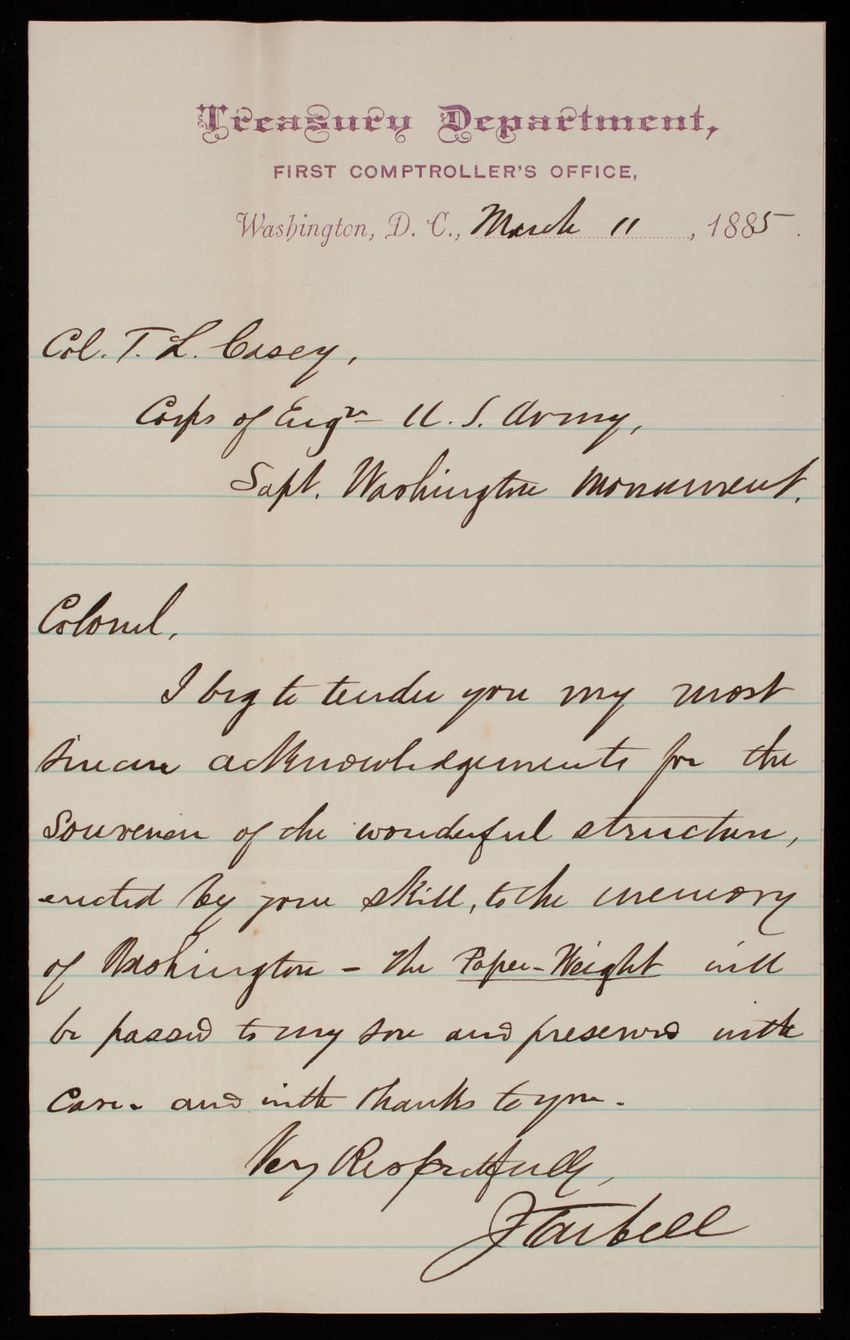 Treasury Department,
FIRST COMPTROLLER'S OFFICE,
Washington, D. C., March 11, 1885.
Col. T. L. Casey,
Corps of Engrs U. S. Army,
Supt. Washington Monument.
Colonel,
I beg to tender you my most
sincere acknowledgements for the
Souvenir of the wonderful structure,
erected by your skill, to the memory
of Washington – the Paper-Weight will
be passed to my son and preserved with
care. and with thanks to you.
Very Respectfully,
J Tarbell